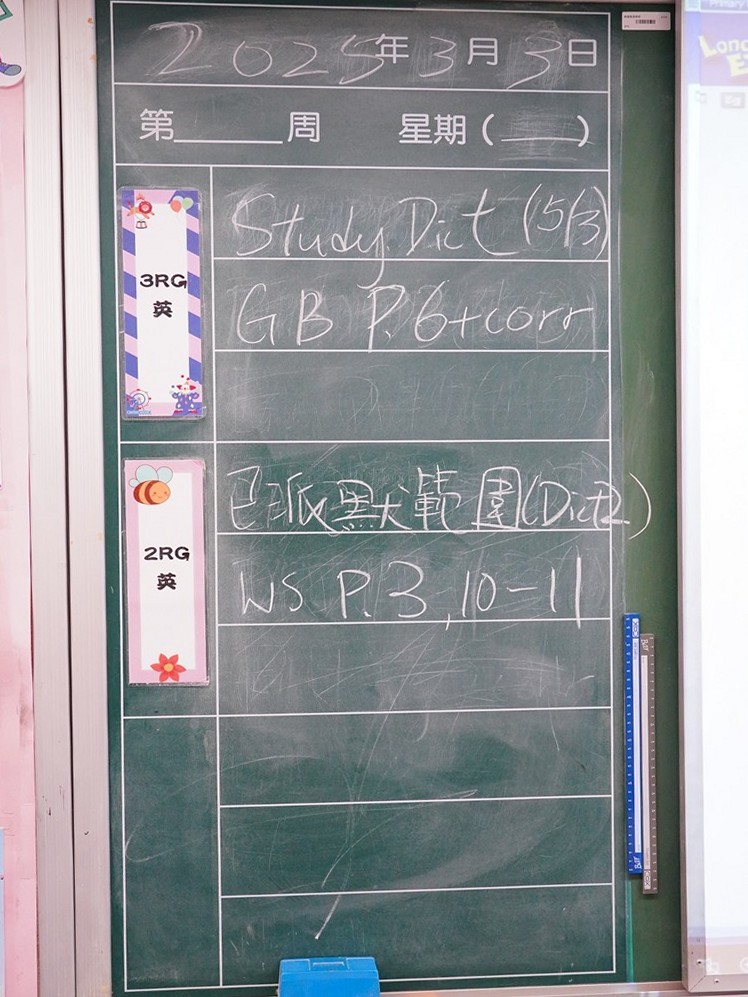 2025年3月3日
第____周 星期(____)
3RG
英
Study Dict (5/3)
GB P.6+corr
2RG
英
已派默範圍(Dict2)
WS P.3,10-11